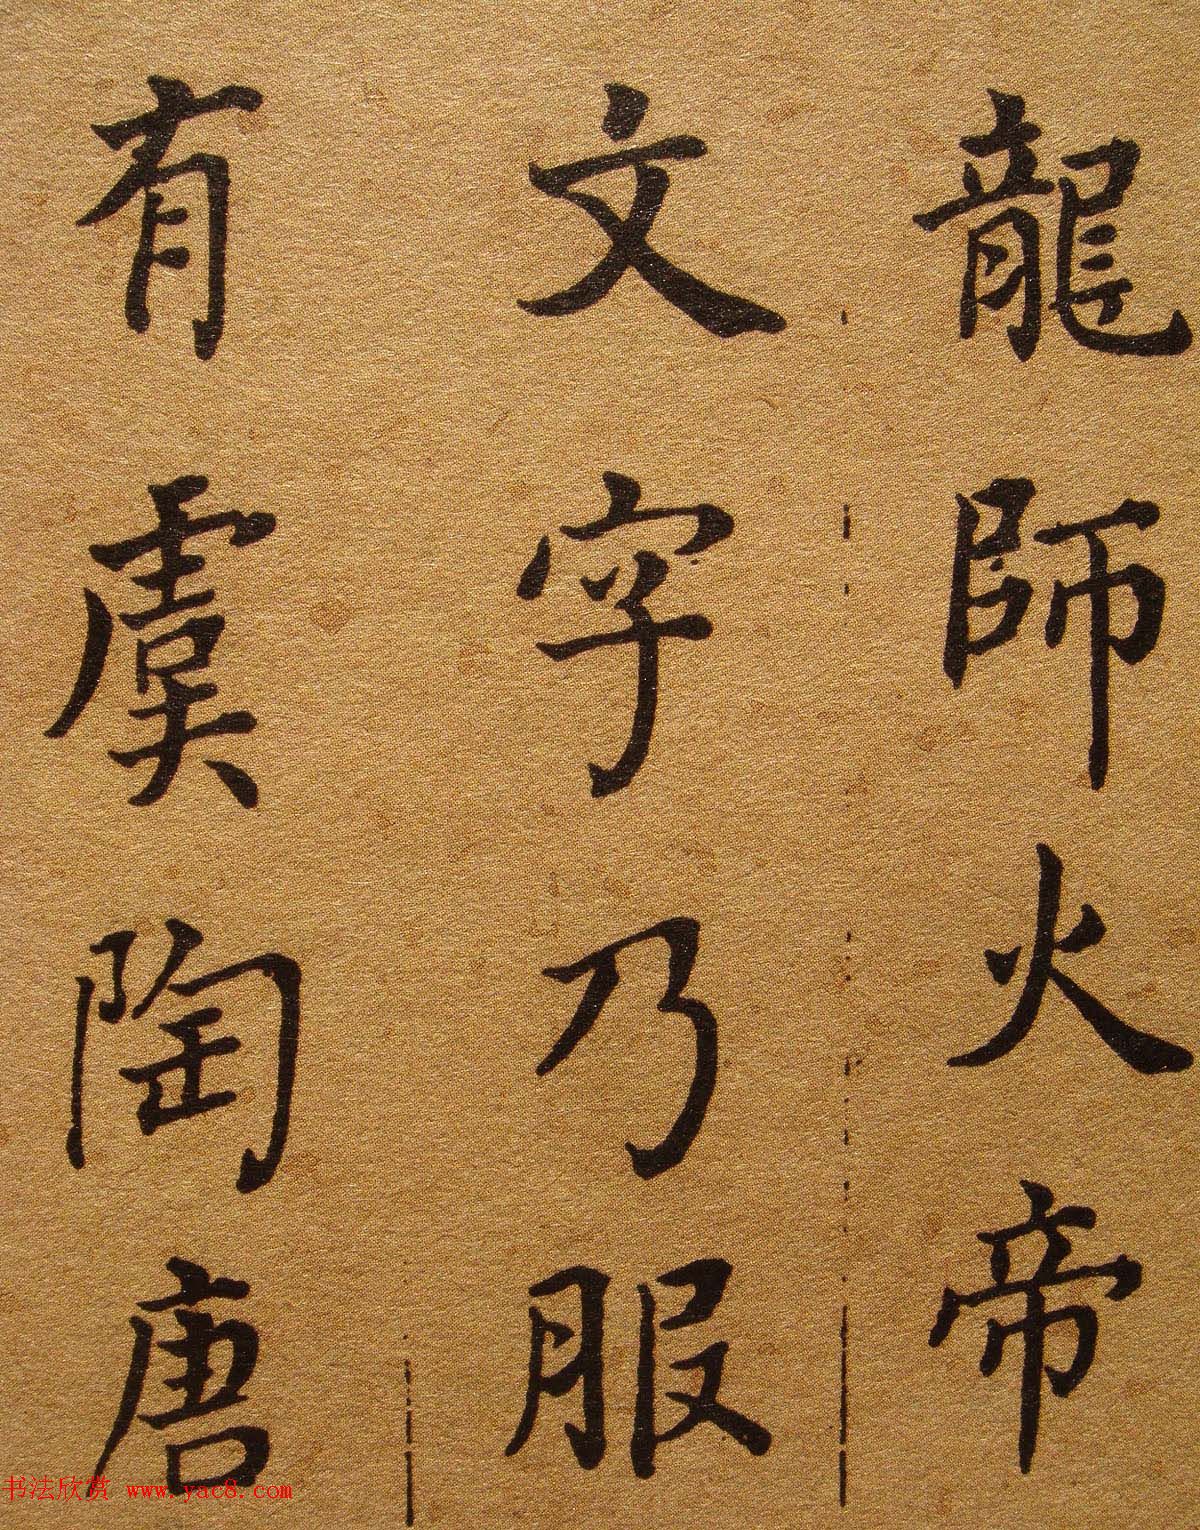 龍師火帝
文字乃服
有虞陶唐
书法欣赏 www.yac8.com